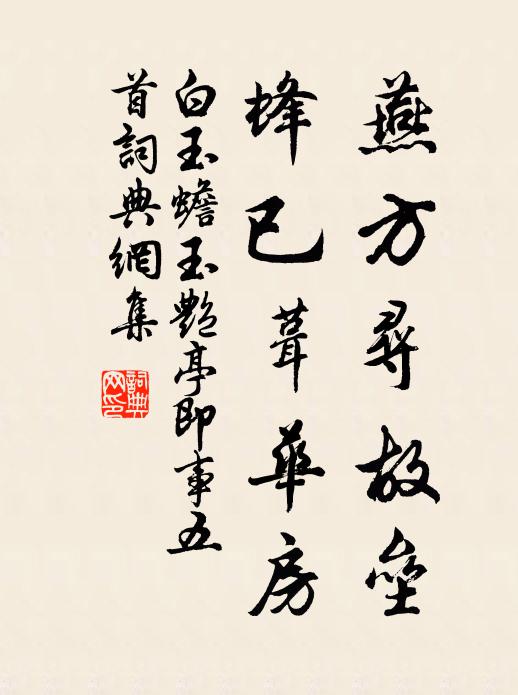 燕方尋故壘
蜂已葺華房
白玉蟾玉艷亭即事五
首詞典網集
詞典
网印